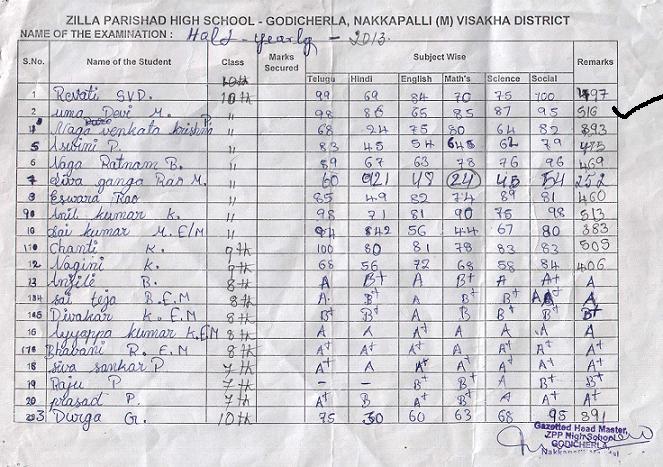 ZILLA PARISHAD HIGH SCHOOL - GODICHERLA, NAKKAPALLI (M) VISAKHA DISTRICT
NAME OF THE EXAMINATION : Half-yearly - 2013.
S.No. Name of the Student Class Marks Secured Subject Wise Remarks
Telugu Hindi English Math's Science Social
1 Revati SVD. 10th 99 69 84 70 75 100 497
2 uma Devi M. P. " 98 86 65 85 87 95 516
Naga venkata krishna " 68 24 75 80 64 82 393
5 Asvini P. " 83 45 54 62 79
6 Naga Ratnam B. " 89 67 63 78 76 96 469
7 Siva ganga Rao M. " 60 21 48 24 45 54 252
8 Eswara Rao " 85 49 82 74 89 81 460
9 Anil kumar k. " 98 71 81 90 75 98 513
10 Sai kumar M. E/M " 94 42 56 44 67 80 383
Chanti K. 9th 100 80 81 78 83 83 505
12 Nagini K. 9th 68 56 72 68 58 84 406
13 B. 8th A B+ A A A+ A
sai teja B.E.M 8th A B+ A B+ B+ A A
Divakar K. E.M 8th B+ B+ A B+ B+ B+ B+
Ayyappa kumar K.E.M 8th A A A+ A A A A
Bhavani R. E.M 8th A+ A+ A A+ A+ A+ A+
18 siva sankar P 7th A+ A A+ A+ A+ A+ A+
19 Raju P 7th - - B+ B+ A B+ B+
20 prasad P. 7th A+ B A A+ A A+ A+
Durga G. 10th 75 30 60 63 68 95 391
Gazetted Head Master,
ZPP High School
GODICHERLA,
Nakkapalli Mandal